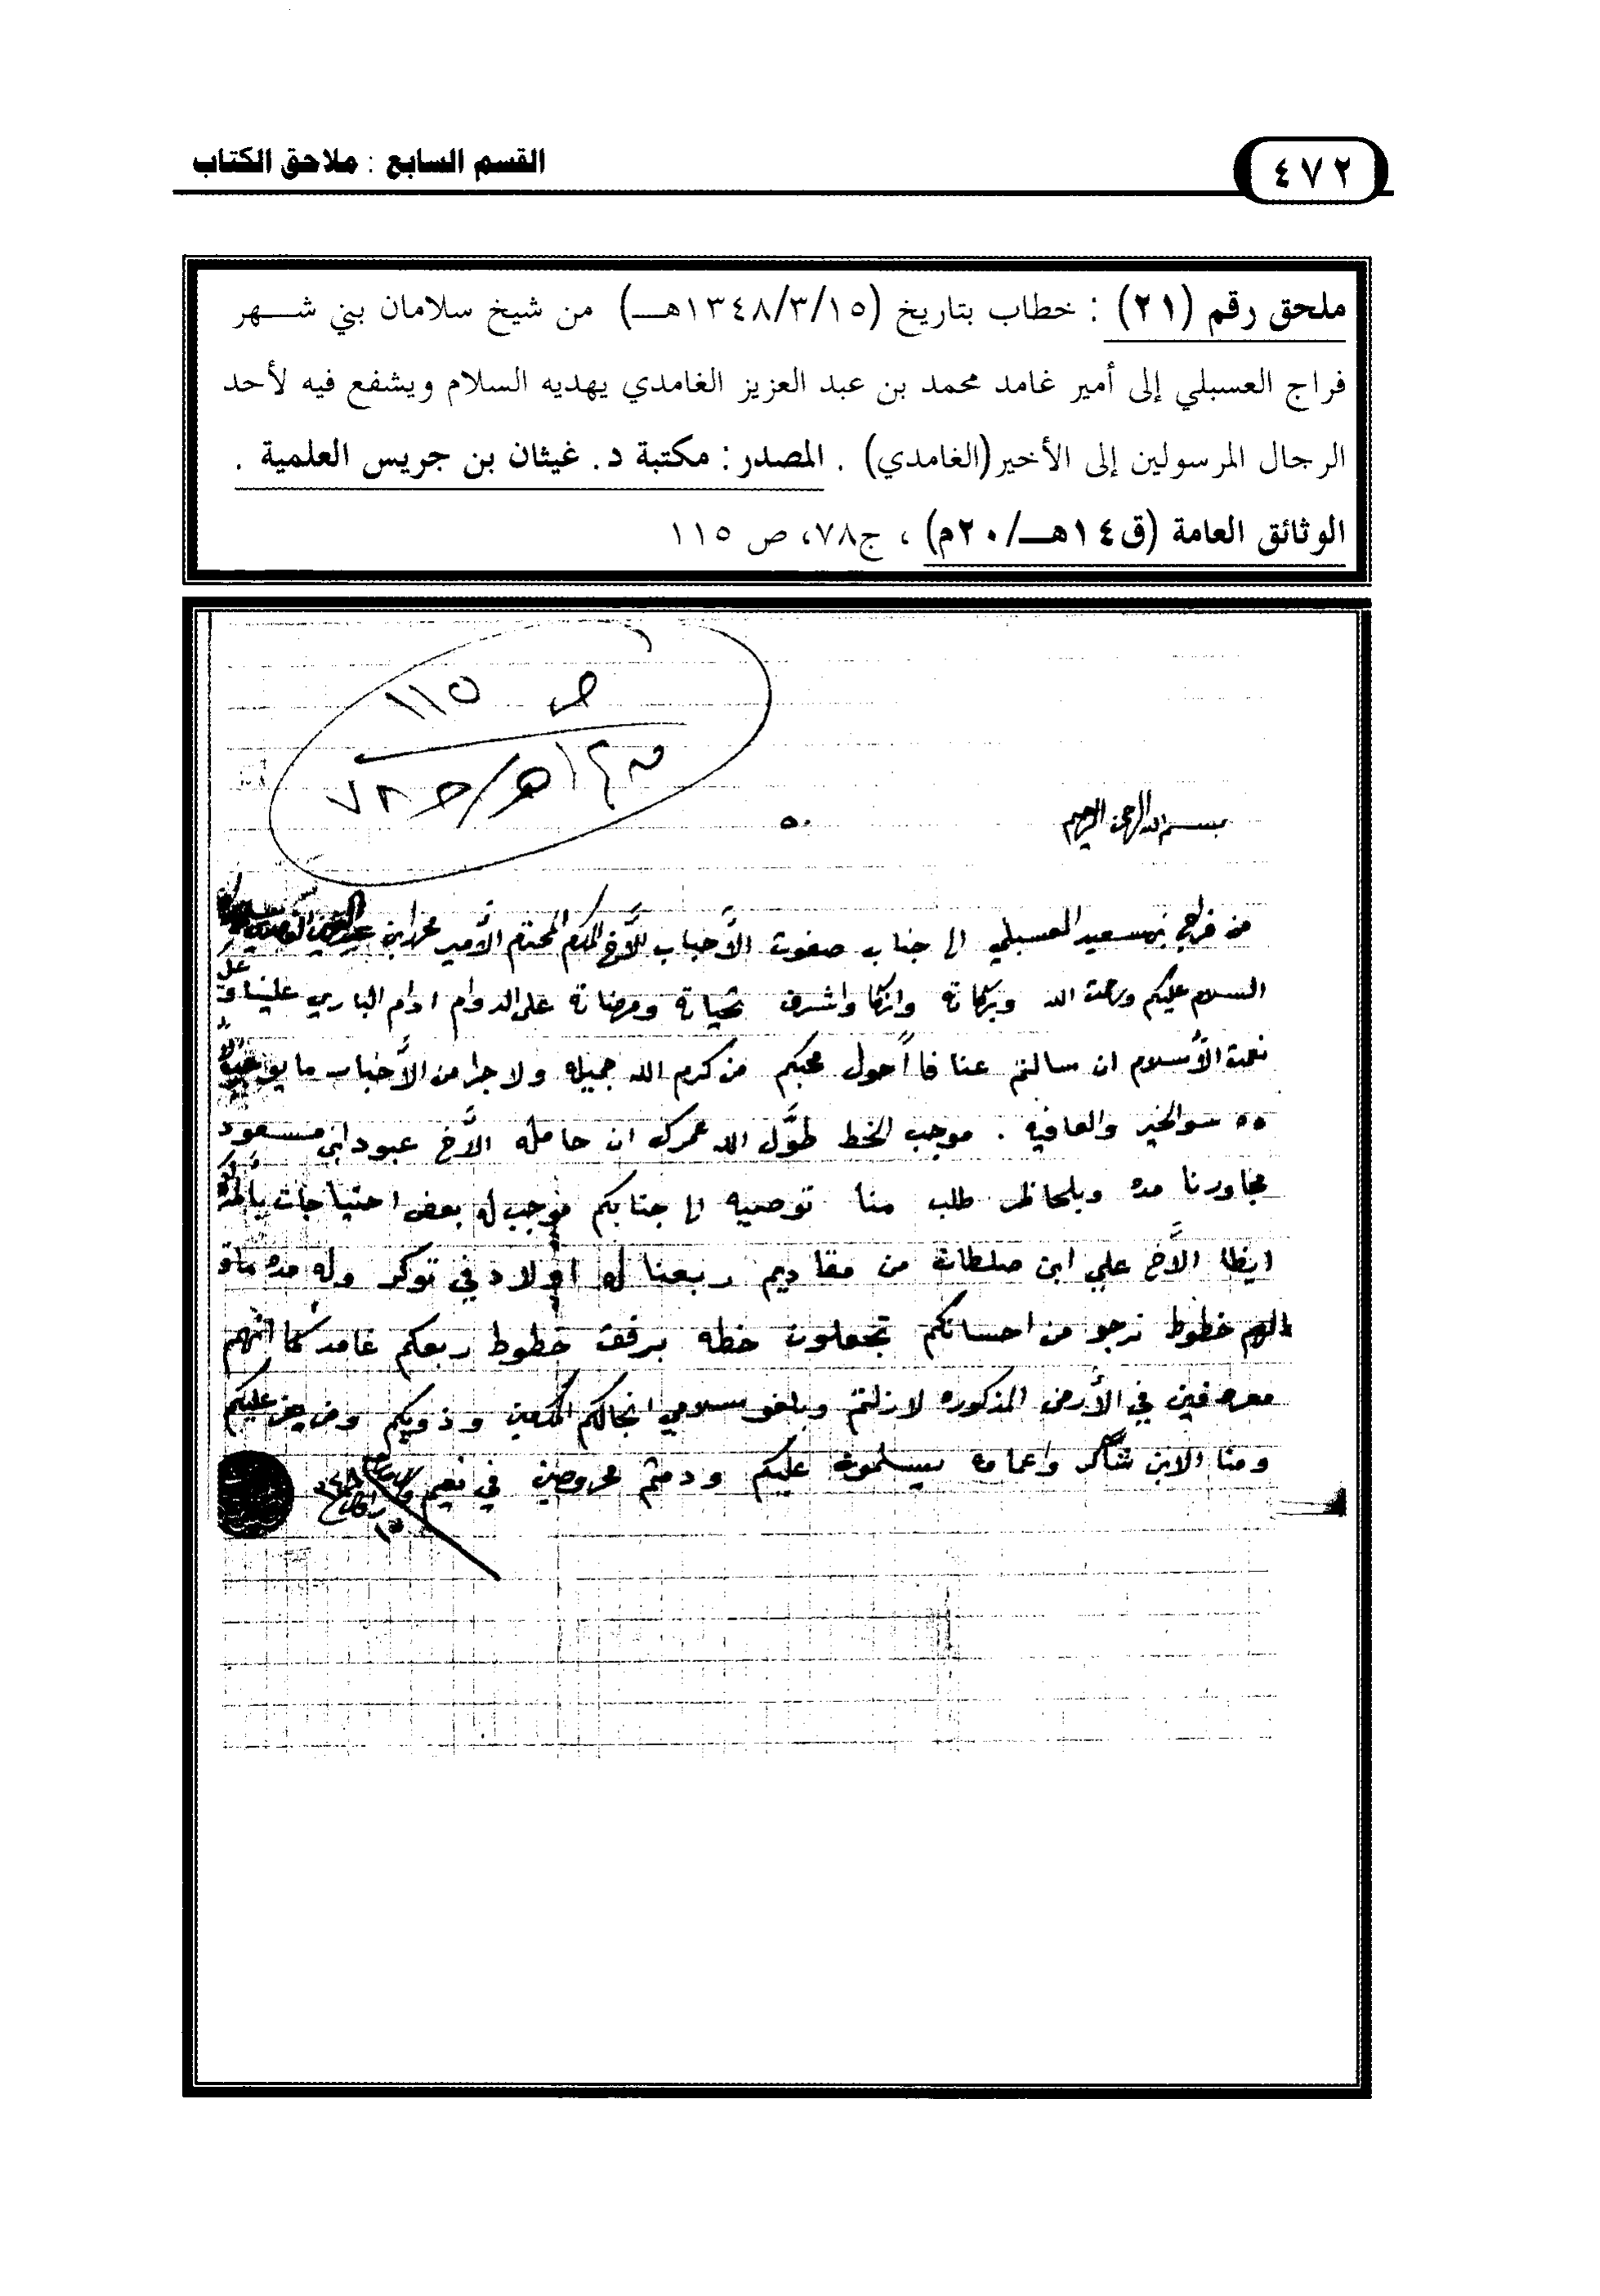 القسم السابع : ملاحق الكتاب
٤٧٢
ملحق رقم (٢١) : خطاب بتاريخ (١٣٤٨/٣/١٥هــ) من شيخ سلامان بني شــهر
فراج العسبلي إلى أمير غامد محمد بن عبد العزيز الغامدي يهديه السلام ويشفع فيه لأحد
الرجال المرسولين إلى الأخير(الغامدي) . المصدر : مكتبة د. غيثان بن جريس العلمية .
الوثائق العامة (ق١٤هــ/٢٠م) ، ج٧٨، ص ١١٥
ص ١١٥
ق١٤هـ/ج٧٨
بسم الله الرحمن الرحيم
من فراج بن سعيد العسبلي الى جناب صفوت الأحباب للأخ المكرم المحترم الأمير محمد ابن
السلام عليكم ورحمت الله وبركاته وازكا واشرف تحياته ومرضاته على الدوام ادام الباري علينا و
نعمت الأسلام ان سالتم عنا فا أحول محبكم من كرم الله جميله ولا جرا من الأخبار ما يوجب
سو الخير والعافيه . موجب الخط طوَّل الله عمرك ان حامله الأخ عبود ابن مسعود
مجاورنا مده وبلحاظر طلب منا توصيه الا جنابكم موجب له بعض احتياجات
ايظا الأخ علي ابن صلطان من مقاديم ربعنا له اولاد في توكر وله مده ما
الهم خطوط نرجو من احسانكم تجعلون خطه برفقت خطوط ربعكم غامد كما انهم
معروفين في الأرض المذكوره لازلتم وبلغو سلامي انجالكم المكرمين وذويكم ومن يعز عليكم
ومنا الابن شاكر واعمامه يسلمون عليكم ودمتم محروصين في نعيم والسلام
١٣٤٨
١٥